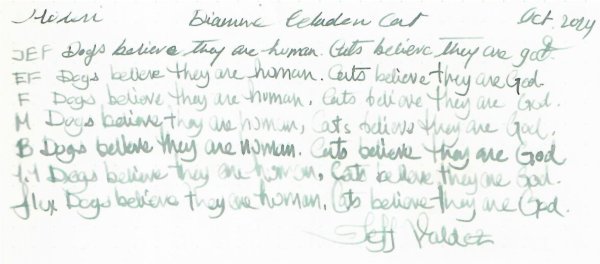 Midori Diamine Celadon Cat Oct. 2024
JEF Dogs believe they are human. Cats believe they are god.
EF Dogs believe they are human. Cats believe they are God.
F Dogs believe they are human, Cats believe they are God.
M Dogs believe they are human, Cats believe they are God.
B Dogs believe they are human. Cats believe they are God
1.1 Dogs believe they are human, Cats believe they are God.
flex Dogs believe they are human, Cats believe they are God.
Jeff Valdez